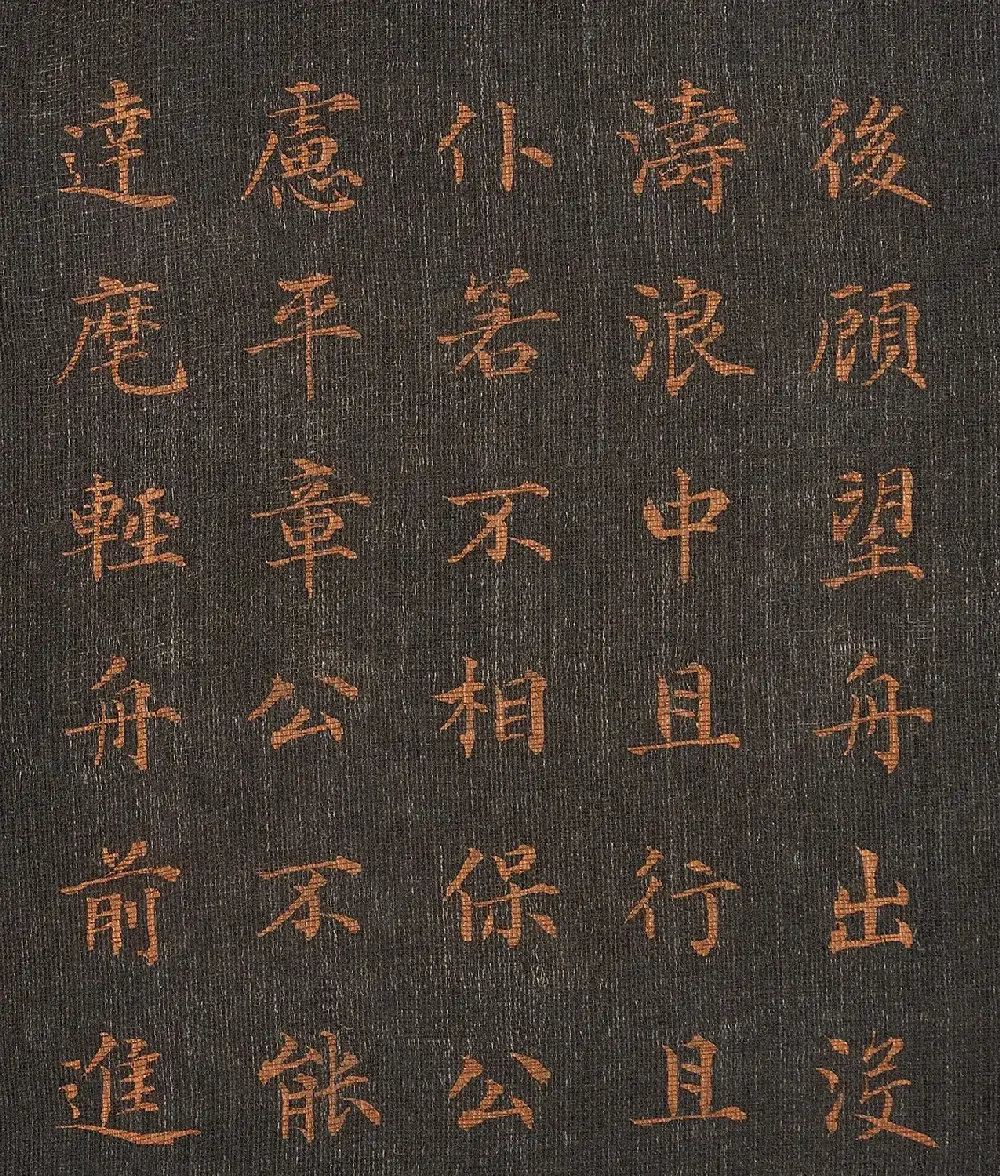 後顧望舟出没
濤浪中且行且
仆若不相保公
慮平章公不能
達麾輕舟前進